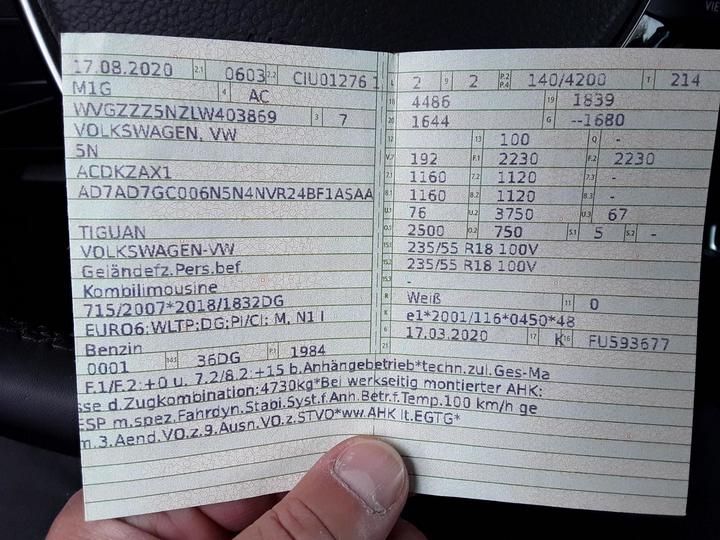 17.08.2020 2.1 0603 2.2 CIU01276 1
M1G 4 AC
WVGZZZ5NZLW403869 3 7
VOLKSWAGEN, VW
5N
ACDKZAX1
AD7AD7GC006N5N4NVR24BF1ASAA
TIGUAN
VOLKSWAGEN-VW
Geländefz.Pers.bef.
Kombilimousine
715/2007*2018/1832DG
EURO6;WLTP;DG;PI/CI; M, N1 I
Benzin
0001 14.1 36DG P.1 1984
F.1/F.2:+0 u. 7.2/8.2:+15 b.Anhängebetrieb*techn.zul.Ges-Ma
sse d.Zugkombination:4730kg*Bei werkseitig montierter AHK:
ESP m.spez.Fahrdyn.Stabi.Syst.f.Anh.Betr.f.Temp.100 km/h ge
m.3.Aend.VO.z.9.Ausn.VO.z.STVO*ww.AHK lt.EGTG*
L 2 9 2 P.2 P.4 140/4200 T 214
18 4486 19 1839
20 1644 G --1680
12 13 100 Q -
V.7 192 F.1 2230 F.2 2230
7.1 1160 7.2 1120 7.3 -
8.1 1160 8.2 1120 8.3 -
U.1 76 U.2 3750 U.3 67
O.1 2500 O.2 750 S.1 5 S.2 -
15.1 235/55 R18 100V
15.2 235/55 R18 100V
15.3 -
R Weiß 11 0
K e1*2001/116*0450*48
6 17.03.2020 17 K 16 FU593677
21